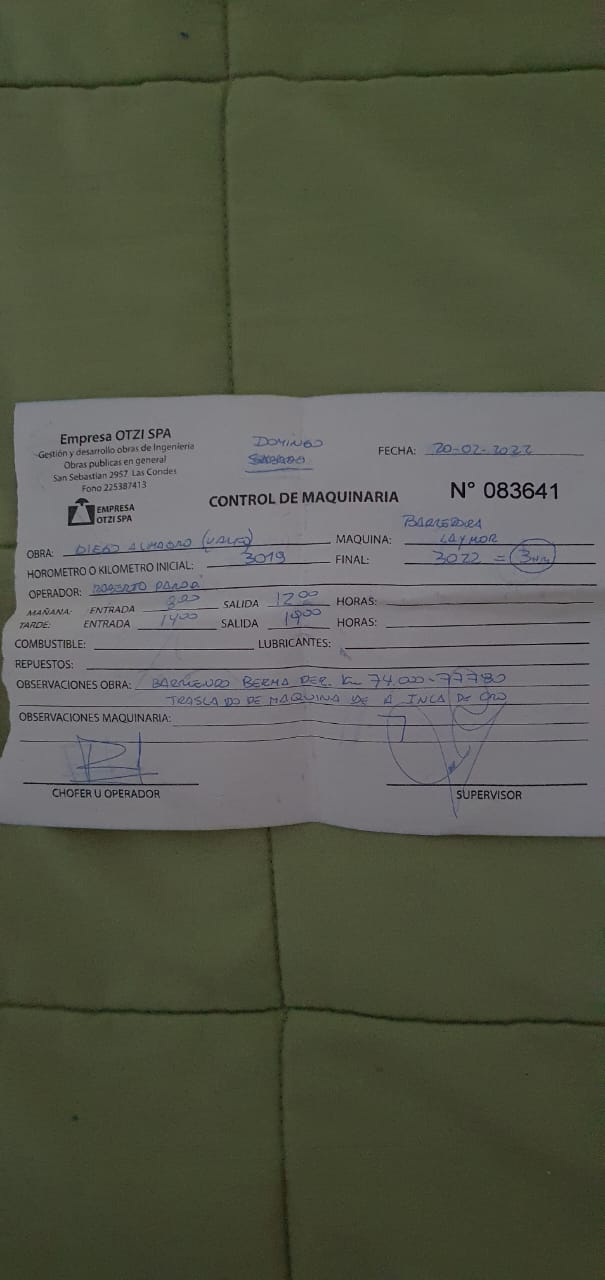 Empresa OTZI SPA
Gestión y desarrollo obras de Ingenieria
Obras publicas en general
San Sebastian 2957. Las Condes
Fono 225387413
EMPRESA
OTZI SPA
DOMINGO
SABADO
FECHA: 20-02-2022
CONTROL DE MAQUINARIA
N° 083641
OBRA: DIEGO ALMAGRO
MAQUINA: BARREDORA
LAYMOR
HOROMETRO O KILOMETRO INICIAL: 3019
FINAL: 3022 = 3
OPERADOR: ROBERTO PARDO
MAÑANA: ENTRADA 8:00 SALIDA 12 00 HORAS:
TARDE: ENTRADA 14 00 SALIDA 19 00 HORAS:
COMBUSTIBLE: LUBRICANTES:
REPUESTOS:
OBSERVACIONES OBRA: BARRIENDO BERMA DER. Km 74.000-77780
TRASLADO DE MAQUINA DE A INCA DE ORO
OBSERVACIONES MAQUINARIA:
CHOFER U OPERADOR
SUPERVISOR